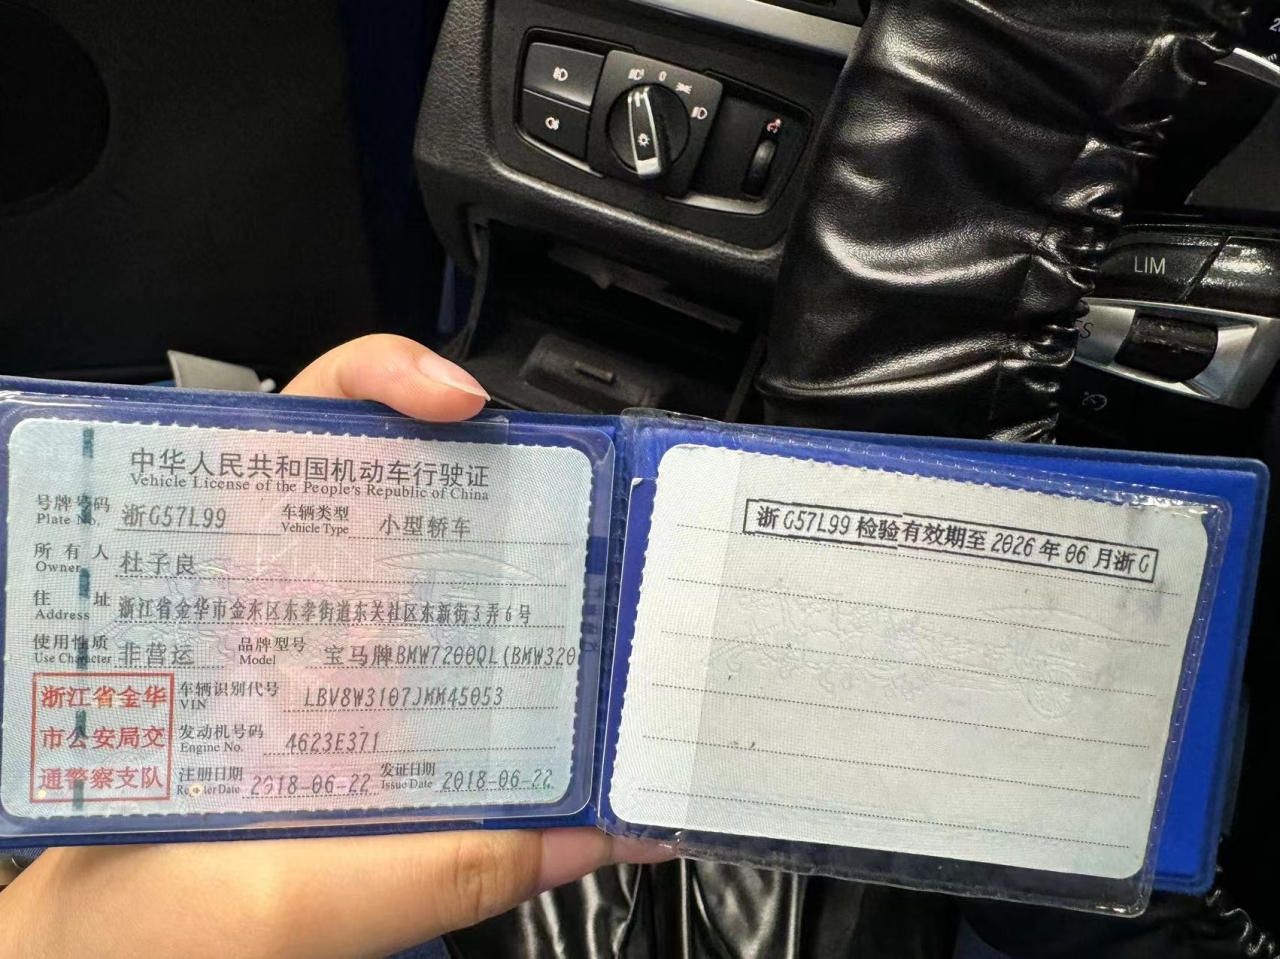 LIM
中华人民共和国机动车行驶证
Vehicle License of the People's Republic of China
号牌号码 浙G57L99 车辆类型 小型轿车
Plate No. Vehicle Type
所有人 杜子良
Owner
住址 浙江省金华市金东区东孝街道东关社区东新街3弄6号
Address
使用性质 非营运 品牌型号 宝马牌BMW7200QL(BMW320
Use Character Model
浙江省金华
市公安局交
通警察支队
车辆识别代号 LBV8W3107JMM45053
VIN
发动机号码 4623E371
Engine No.
注册日期 2018-06-22 发证日期 2018-06-22
Register Date Issue Date
浙G57L99检验有效期至2026年06月浙G